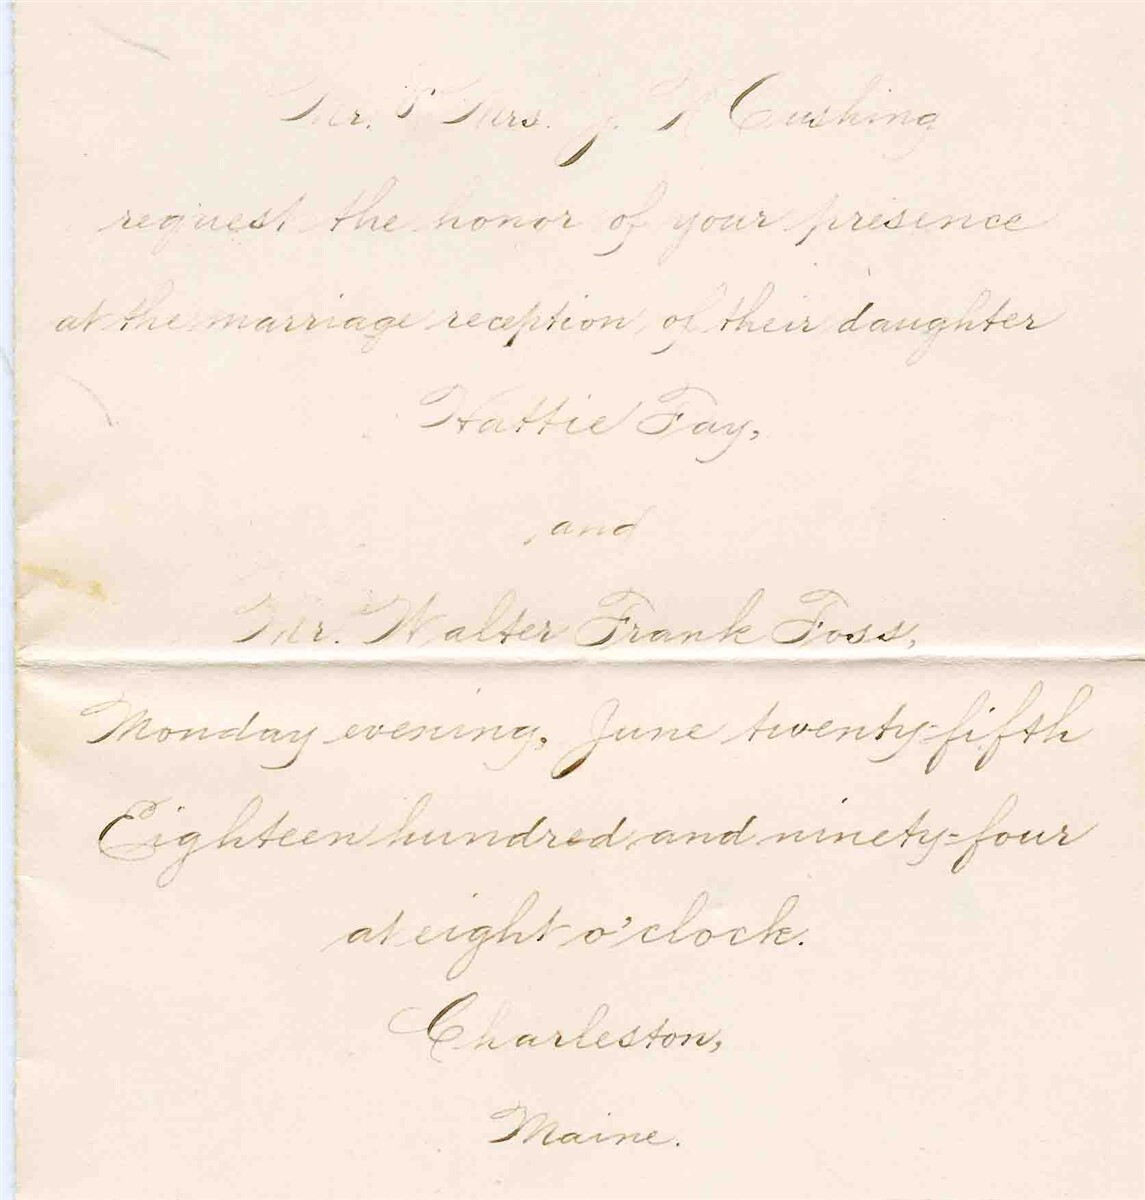 Mr. & Mrs. J. H Cushing
request the honor of your presence
at the marriage reception of their daughter
Hattie Fay,
and
Mr. Walter Frank Foss,
Monday evening, June twenty-fifth
Eighteen hundred and ninety-four
at eight o'clock.
Charleston,
Maine.